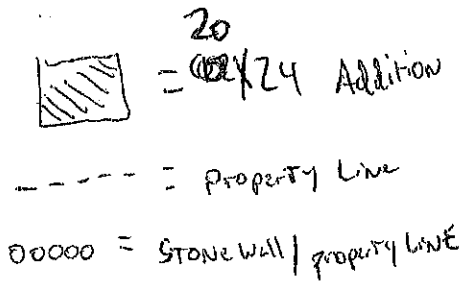 20
= X24 Addition
----- = Property Line
00000 = Stone Wall | property LINE